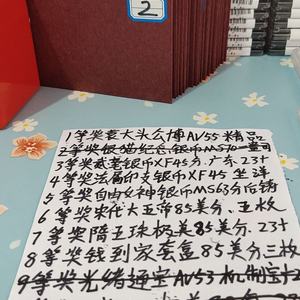 2
1等奖袁大头公博AV55精品
2等奖银猫纪念银币MS70一
3等奖贰毫银币XF45分.广东.23十
4等奖法属印支银币XF45坐洋
5等奖自由女神银币MS63分后铸
6等奖宋代大五萍85美分.五枚
7等奖隋五珠极美85美分.23十
8等奖钱到家套盒85美分三枚
9等奖光绪通宝AV53机制宝